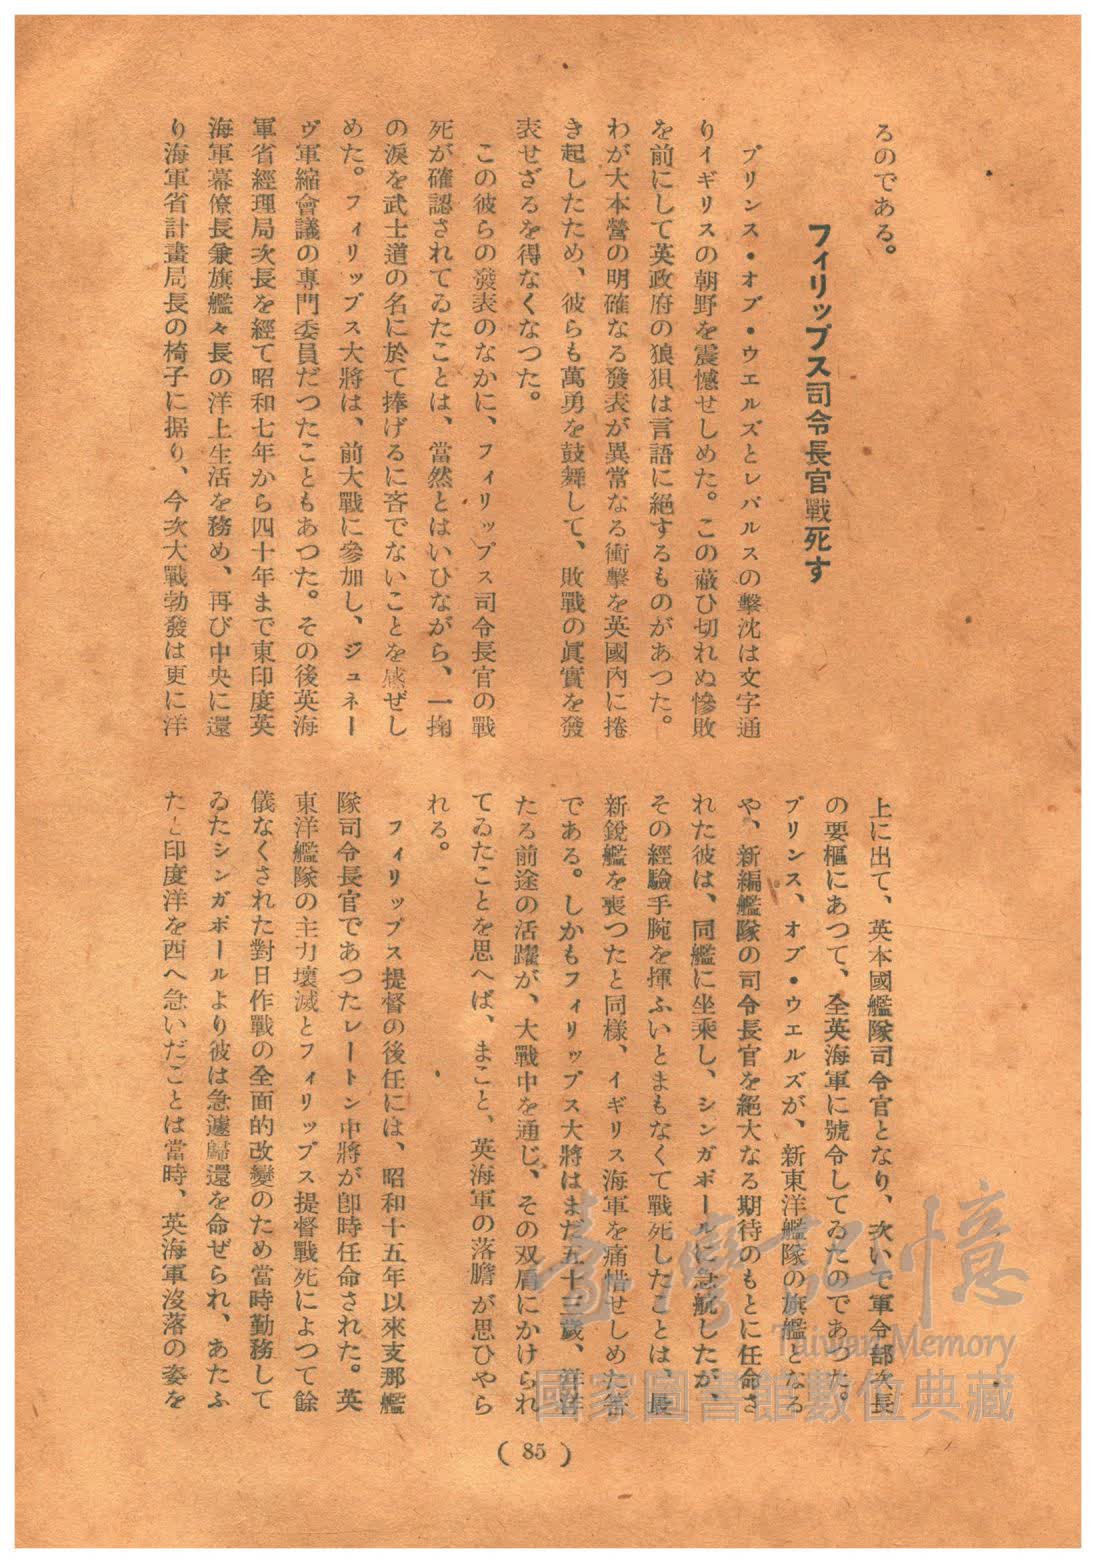 るのである。
フィリップス司令長官戰死す
プリンス・オブ・ウエルズとレパルスの擊沈は文字通
りイギリスの朝野を震憾せしめた。この蔽ひ切れぬ慘敗
を前にして英政府の狼狽は言語に絕するものがあつた。
わが大本營の明確なる發表が異常なる衝擊を英國內に捲
き起したため、彼らも萬勇を鼓舞して、敗戰の眞實を發
表せざるを得なくなつた。
この彼らの發表のなかに、フィリップス司令長官の戰
死が確認されてゐたことは、當然とはいひながら、一掬
の淚を武士道の名に於て捧げるに吝でないことを感ぜし
めた。フィリップス大將は、前大戰に參加し、ジュネー
ヴ軍縮會議の專門委員だつたこともあつた。その後英海
軍省經理局次長を經て昭和七年から四十年まで東印度英
海軍幕僚長兼旗艦々長の洋上生活を務め、再び中央に還
り海軍省計畫局長の椅子に据り、今次大戰勃發は更に洋
上に出て、英本國艦隊司令官となり、次いで軍令部次長
の要樞にあつて、全英海軍に號令してゐたのであつた。
プリンス、オブ・ウエルズが、新東洋艦隊の旗艦となる
や、新編艦隊の司令長官を絕大なる期待のもとに任命さ
れた彼は、同艦に坐乘し、シンガポールに急航したが、
その經驗手腕を揮ふいとまもなくて戰死したことは、最
新銳艦を喪つたと同樣、イギリス海軍を痛惜せしめた答
である。しかもフィリップス大將はまだ五十三歲、洋洋
たる前途の活躍が、大戰中を通じ、その双肩にかけられ
てゐたことを思へば、まこと、英海軍の落膽が思ひやら
れる。
フィリップス提督の後任には、昭和十五年以來支那艦
隊司令長官であつたレートン中將が卽時任命された。英
東洋艦隊の主力壞滅とフィリップス提督戰死によつて餘
儀なくされた對日作戰の全面的改變のため當時勤務して
ゐたシンガポールより彼は急遽歸還を命ぜられ、あたふ
たと印度洋を西へ急いだことは當時、英海軍沒落の姿を
( 85 )
臺灣記憶
Taiwan Memory
國家圖書館數位典藏